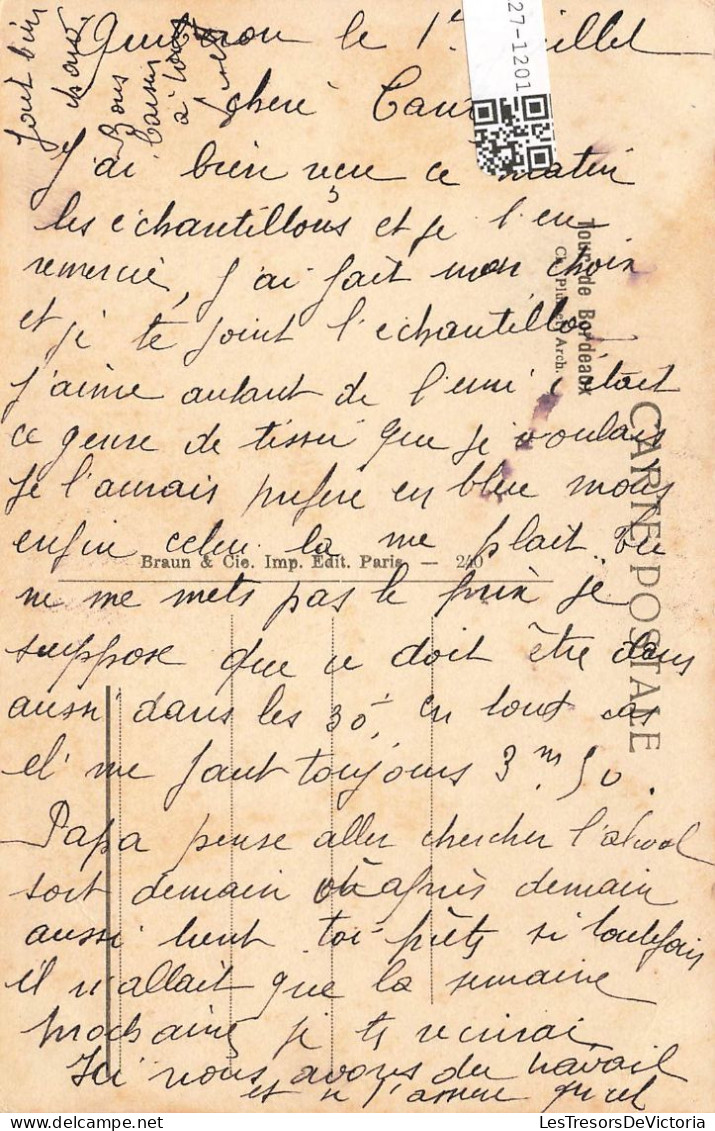 le 1er
chère
J'ai bien reçu ce matin
les échantillons et je t'en
remercie, J'ai fait mon choix
et je te joint l'échantillon
J'aime autant de l'uni c'était
ce genre de tissu que je voulais
Je l'aurais préféré en bleu mais
enfin celui la me plait. Tu
ne me mets pas le prix je
suppose que ce doit être dans
aussi dans les 30f, en tout cas
il me faut toujours 3m50.
Papa pense aller chercher l'alcool
soit demain où après demain
aussi tient toi prêt, si toutefois
il n'allait que la semaine
prochaine je te récrirai
Ici nous avons du travail
et
Bons
baisers
à tous
27-1201
Tour de Bordeaux
Arch.
CARTE POSTALE
Braun & Cie. Imp. Edit. Paris — 240
LesTresorsDeVictoria